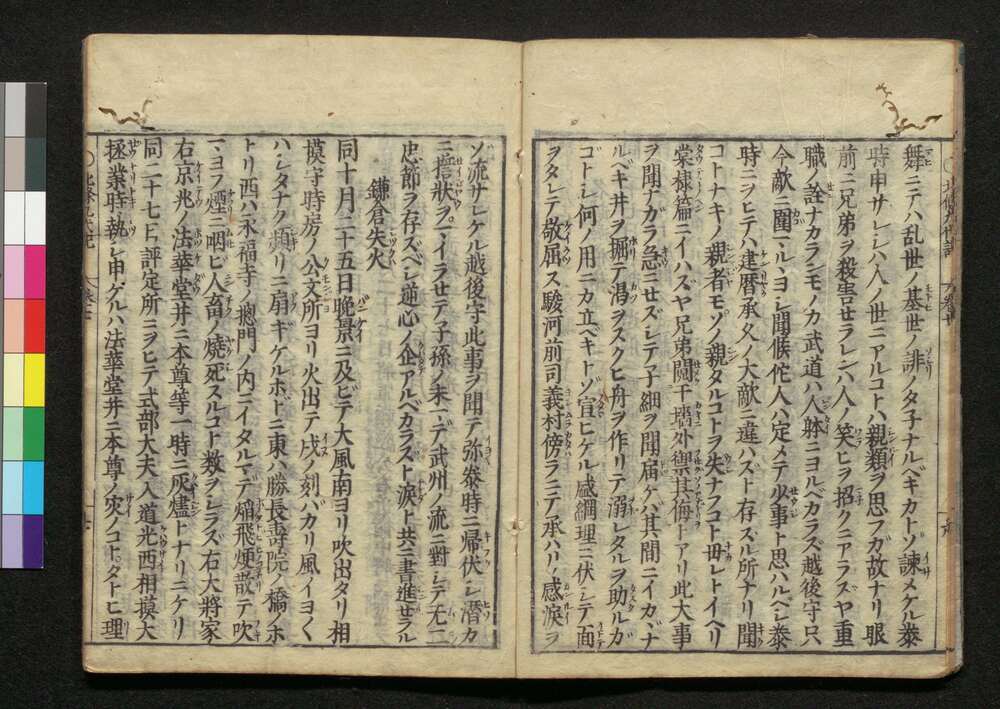 舞ニテハ乱世ノ基世ノ誹ノタ子ナルベキカトゾ諫メケル泰
時申サレシハ人ノ世ニアルコトハ親類ヲ思フガ故ナリ眼
前ニ兄弟ヲ殺害セラレンハ人ノ笑ヒヲ招クニアラズヤ重
職ノ詮ナカランモノカ武道ハ人躰ニヨルベカラズ越後守只
今敵ニ圍マルヽヨシ聞候他人ハ定メテ少事ト思ハルベシ泰
時ニヲヒテハ建暦承久ノ大敵ニ違ハズト存ズル所ナリ聞
コトナキノ親者モソノ親タルコトヲ失ナフコト毋レトイヘリ
棠棣篇ニイハズヤ兄弟鬩于墻外禦其侮トアリ此大事
ヲ聞ナガラ急ニセズシテ子細ヲ聞届ケバ其間ニイカヾナ
ルベキ井ヲ掘テ渇ヲスクヒ舟ヲ作リテ溺レタルヲ助ルガ
ゴトシ何ノ用ニカ立ベキトゾ宣ヒケル盛綱理ニ伏シテ面
ヲタレテ敬屈ス駿河前司義村傍ラニテ承ハリ感涙ヲ
ゾ流サレケル越後守此事ヲ聞テ弥泰時ニ帰伏シ潜カ
ニ誓状ヲ
イラセテ子孫ノ末マデ武州ノ流ニ對シテ无二
忠節ヲ存ズベシ逆心ノ企アルベカラズト涙ト共ニ書進セラル
鎌倉失火
同十月二十五日晩景ニ及ビテ大風南ヨリ吹出タリ相
模守時房ノ公文所ヨリ火出テ戌ノ刻バカリ風イヨ〱
ハシタナク頻リニ扇ギケルホドニ東ハ勝長壽院ノ橋ノホ
トリ西ハ永福寺ノ惣門ノ内ニイタルマデ焔飛煙散テ吹
マヨフ煙ニ咽ビ人畜ノ焼死スルコト数ヲシラズ右大將家
右京兆ノ法華堂并ニ本尊等一時ニ灰燼トナリニケリ
同二十七日評定所ニヲヒテ式部大夫入道光西相摸大
掾業時執シ申ゲルハ法華堂并ニ本尊ノ災ノコトタトヒ理